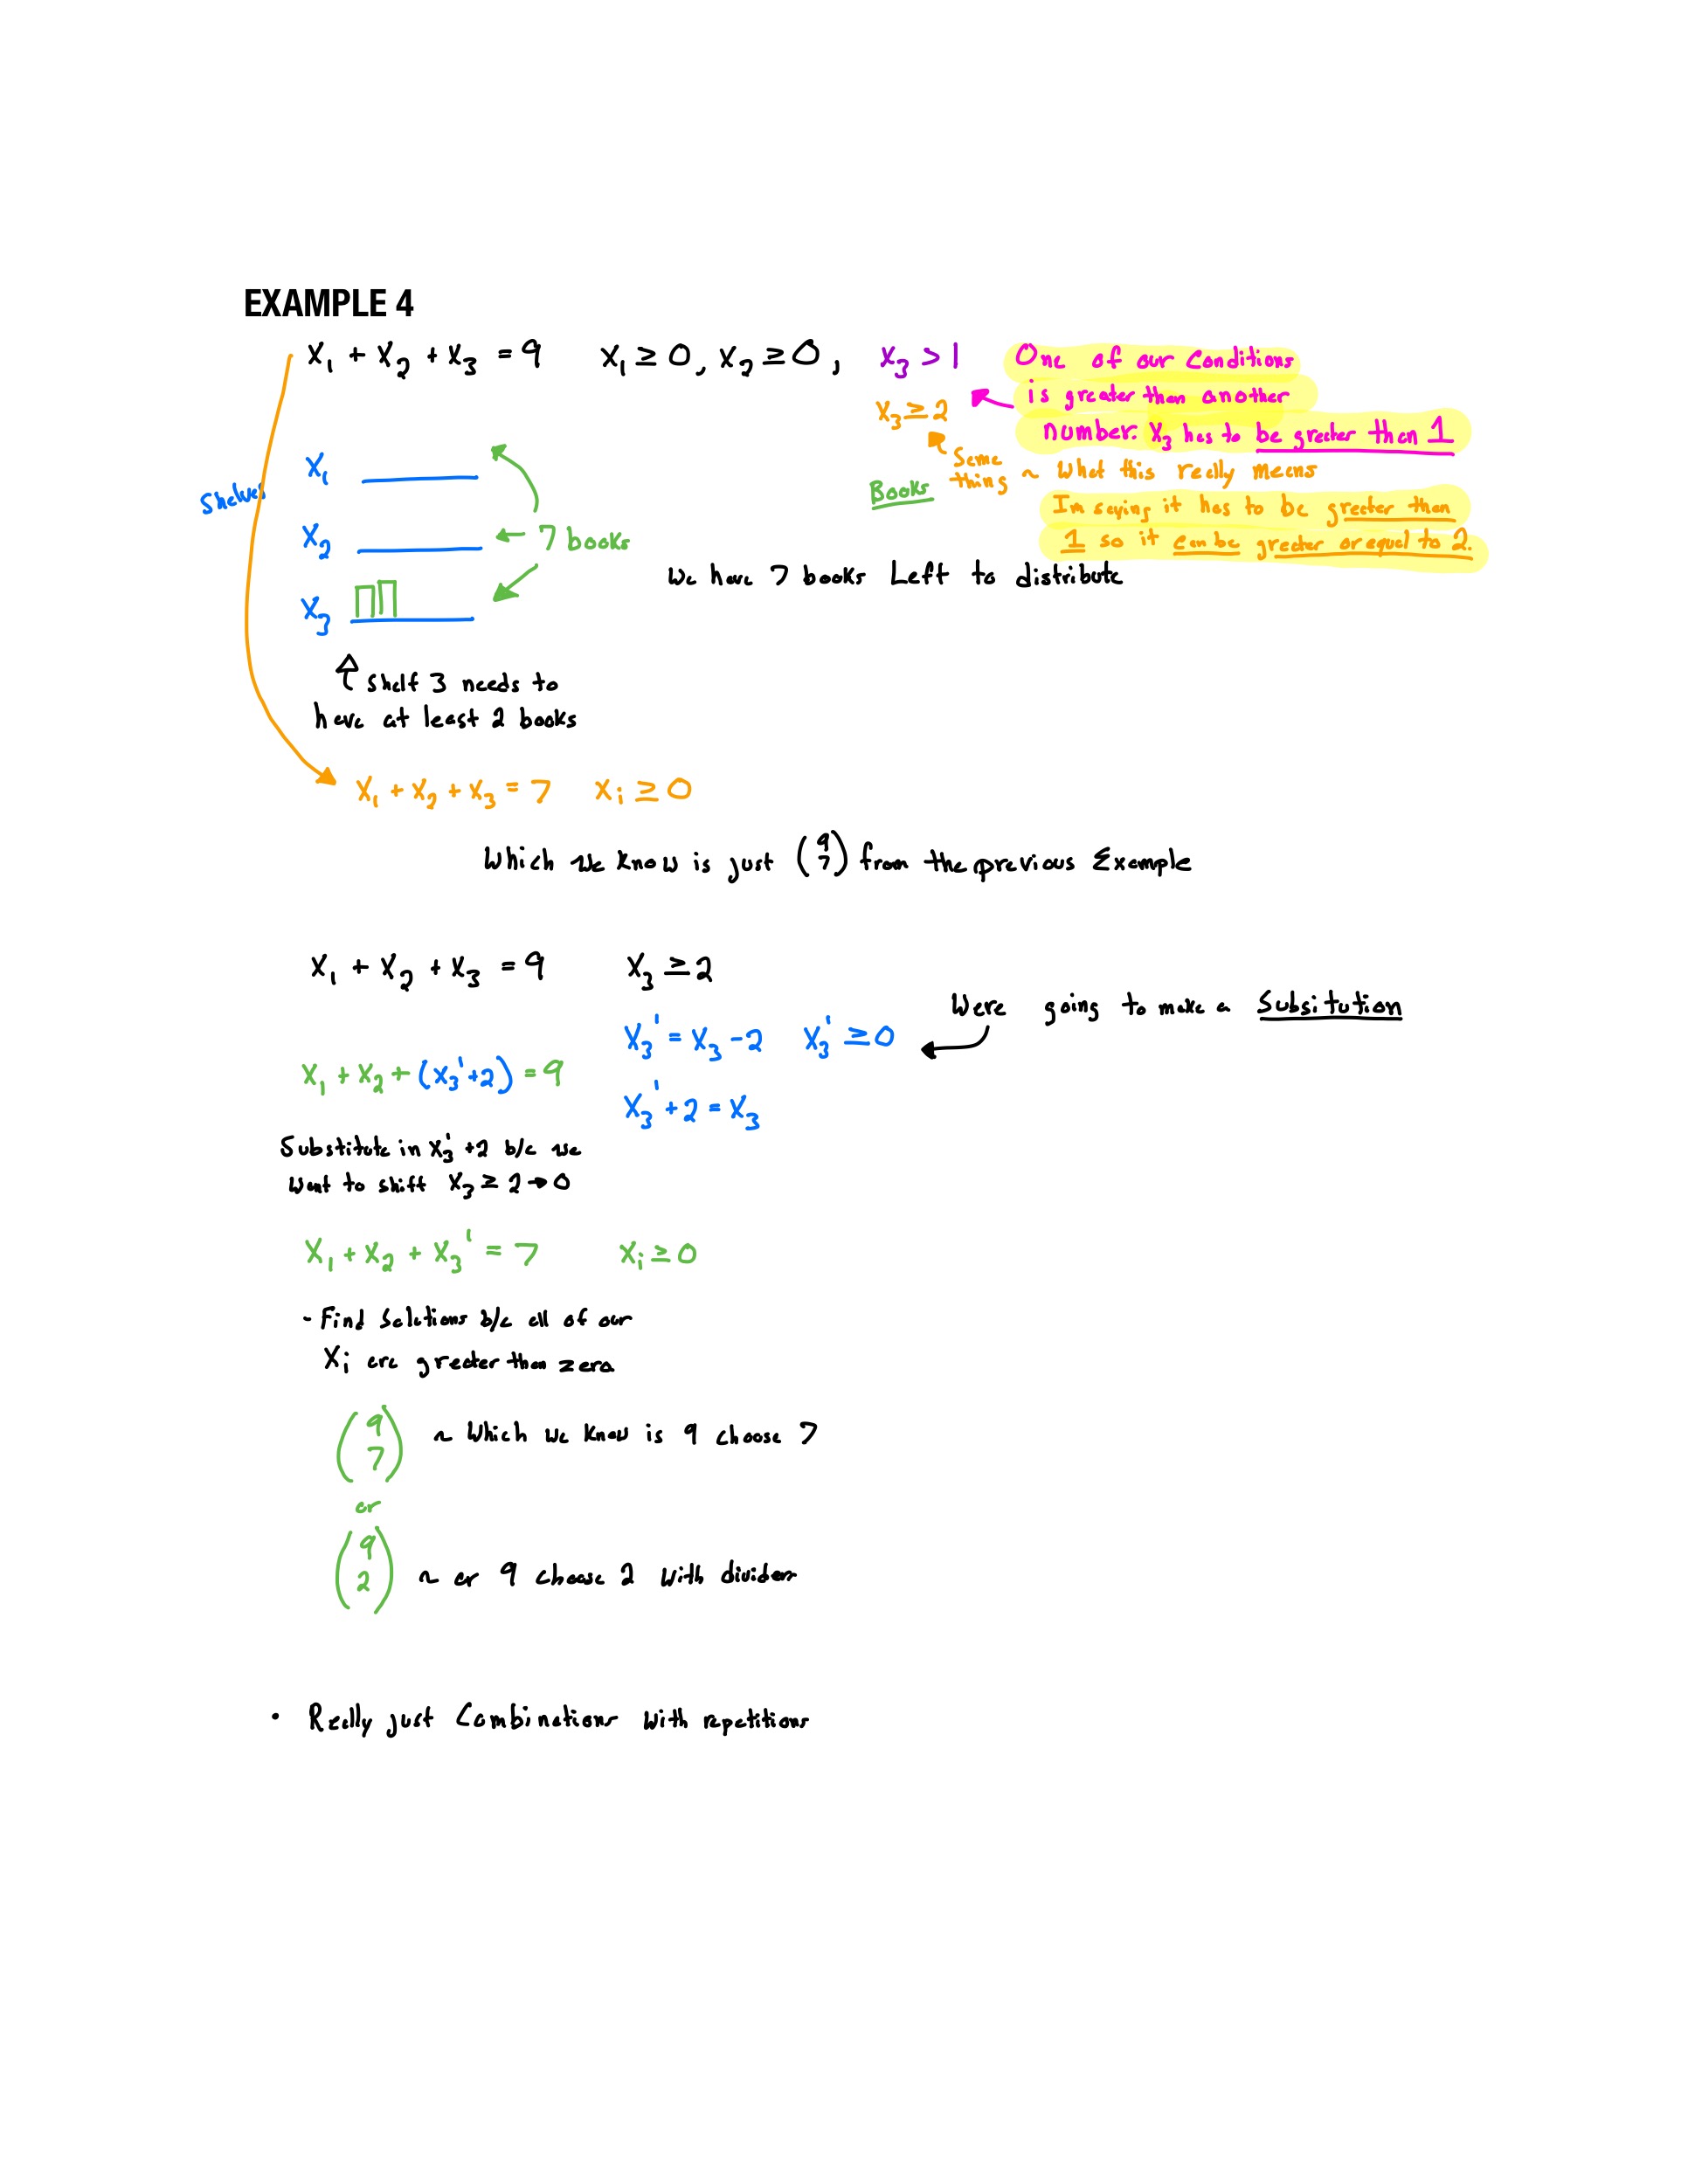 EXAMPLE 4
x₁ + x₂ + x₃ = 9 x₁ ≥ 0, x₂ ≥ 0, x₃ > 1
One of our Conditions
is greater than another
number. X₃ has to be greater than 1
x₃ ≥ 2
Same
thing ~ What this really means
Im saying it has to be greater than
1 so it can be greater or equal to 2.
Books
Shelves
x₁
x₂
x₃
7 books
We have 7 books Left to distribute
Shelf 3 needs to
have at least 2 books
x₁ + x₂ + x₃ = 7 xᵢ ≥ 0
Which we know is just (9 7) from the previous Example
x₁ + x₂ + x₃ = 9 x₃ ≥ 2
Were going to make a Subsitution
x₃' = x₃ - 2 x₃' ≥ 0
x₁ + x₂ + (x₃' + 2) = 9
x₃' + 2 = x₃
Substitute in x₃' + 2 b/c we
want to shift x₃ ≥ 2 → 0
x₁ + x₂ + x₃' = 7 xᵢ ≥ 0
- Find Solutions b/c all of our
xᵢ are greater than zero
(9 7) ~ Which we know is 9 choose 7
or
(9 2) ~ or 9 choose 2 with dividers
• Really just Combinations with repetitions